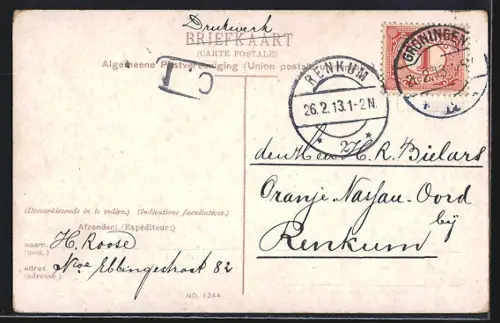 Drukwerk
BRIEFKAART
(CARTE POSTALE)
Algemeene Postvereeniging (Union postale
C.1
RENKUM
26.2.13.1-2N.
GRONINGEN
1
den Heer H. R. Bielars
Oranje-Nassau-Oord
bij
Renkum
(Desverkiezende in te vullen.) (Indications facultatives.)
Afzender: (Expéditeur:)
naam: H. Roose
(nom:)
adres: Nwe Ebbingestraat 82
(adresse:)
NO. 1244